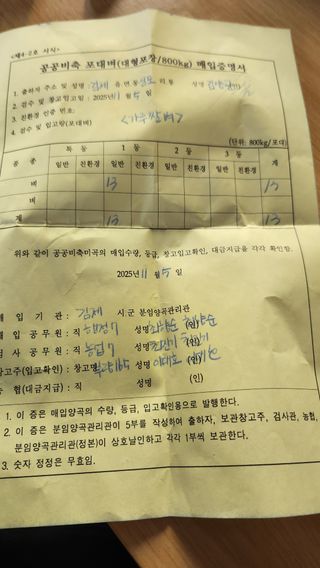 <제4-2호 서식>
공공비축 포대벼(대형포장/800kg) 매입증명서
1. 출하자 주소 및 성명 : 김제 읍·면·동 리·통 성명
2. 검수 및 창고입고일 : 2025년 11월 5일
3. 친환경 인증 번호:
4. 검수 및 입고량(포대벼) <가루쌀벼>
(단위: 800kg/포대)
품 종 특 등 1 등 2 등 3 등 계
일반 친환경 일반 친환경 일반 친환경 일반 친환경
벼 13 13
벼
계 13 13
위와 같이 공공비축미곡의 매입수량, 등급, 창고입고확인, 대금지급을 각각 확인함.
2025년 11월 5일
매 입 기 관 : 김제 시·군 분임양곡관리관
매 입 공 무 원 : 직 행정7 성명 (인)
검 사 공 무 원 : 직 농업7 성명 (인)
창고주(입고확인) : 창고명 성명 (인)
농 협(대금지급) : 직 성명 (인)
1. 이 증은 매입양곡의 수량, 등급, 입고확인용으로 발행한다.
2. 이 증은 분임양곡관리관이 5부를 작성하여 출하자, 보관창고주, 검사관, 농협,
분임양곡관리관(정본)이 상호날인하고 각각 1부씩 보관한다.
3. 숫자 정정은 무효임.